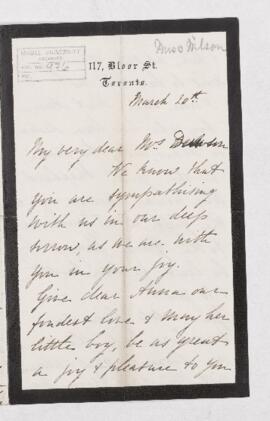 Miss Wilson
McGILL UNIVERSITY
ARCHIVES
ACC. NO. 927
REF.
117, Bloor St.
Toronto.
March 20th.
My very dear Mrs Dawson
We know that
you are sympathising
with us in our deep
sorrow, as we are with
you in your joy.
Give dear Anna our
fondest love & may her
little boy, be as great
a joy & pleasure to you